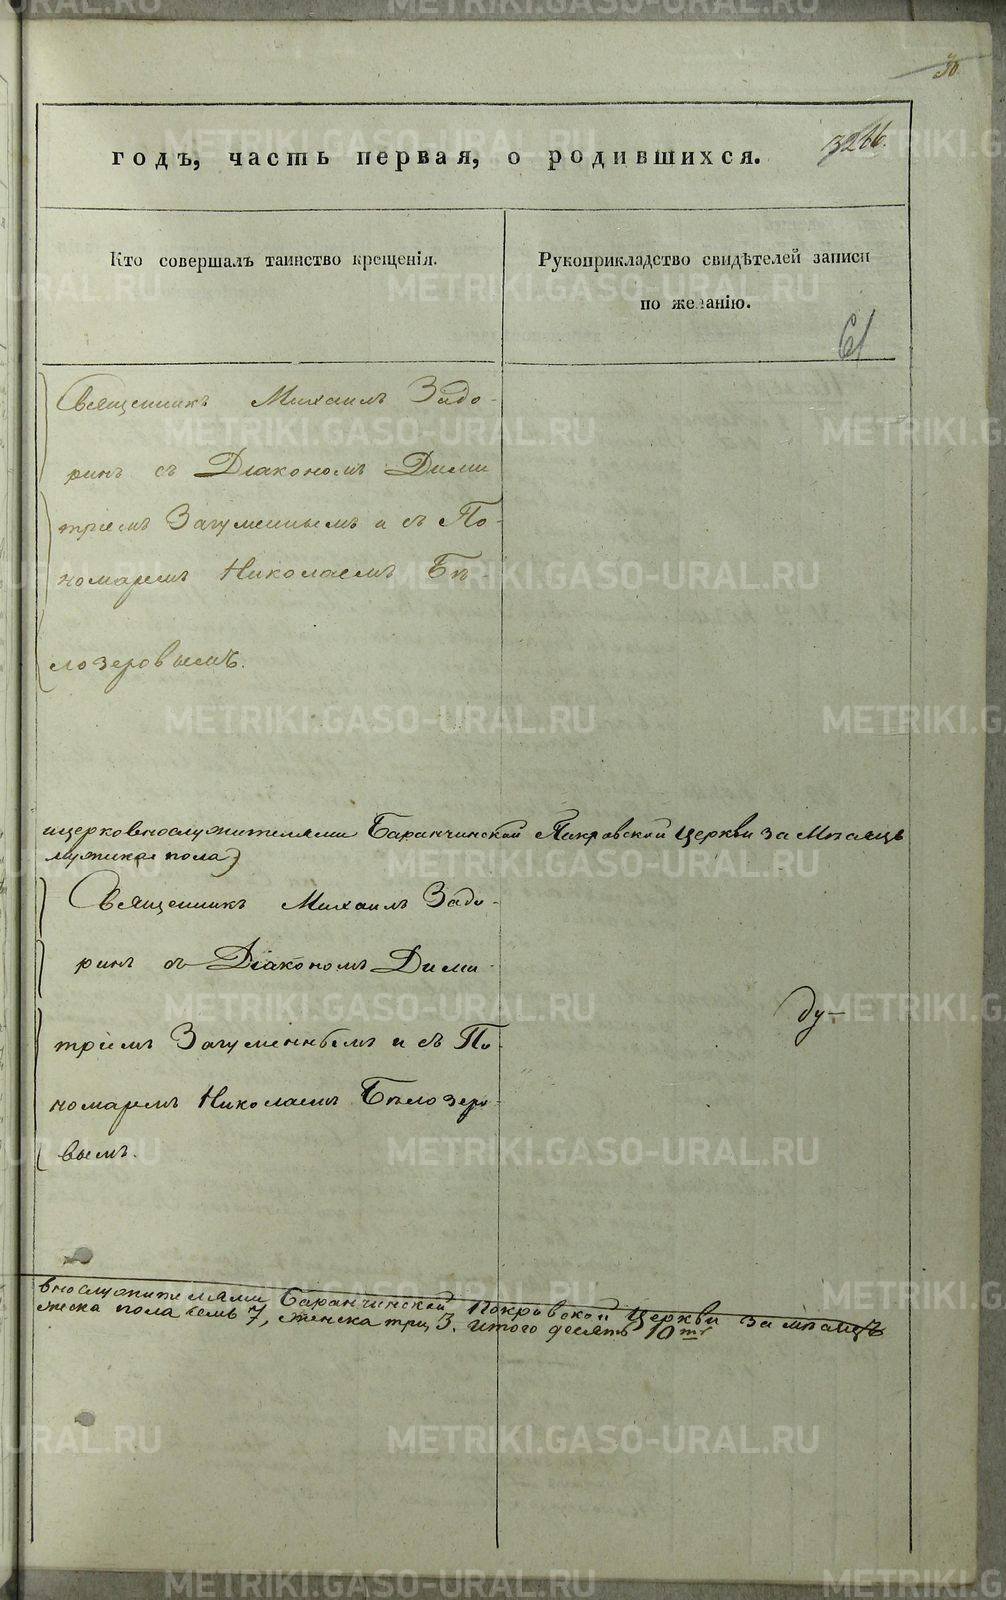 годъ, часть первая, о родившихся.
Кто совершалъ таинство крещенія.
Рукоприкладство свидѣтелей записи
по желанію.
61
Священникъ Михаилъ Задо-
ринъ съ Діакономъ Дими
тріемъ Загуменнымъ и съ По-
номаремъ Николаемъ Бѣ-
лозеровымъ.
ицерковнослужителями Баранчинской Покровской Церкви за Мѣсяцъ
мужска пола)
Священникъ Михаилъ Задо-
ринъ съ Діакономъ Дими-
тріемъ Загуменнымъ и съ По-
номаремъ Николаемъ Бѣлозеро-
вымъ.
ду-
внослужителями Баранчинской Покровской Церкви за мѣсяцъ
жеска пола семь 7, женска три 3. итого десять 10
METRIKI.GASO-URAL.RU